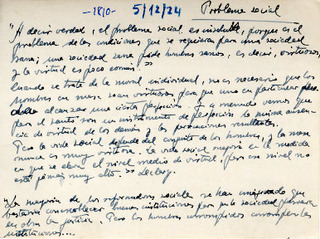 -1810- 5/12/24 Problema social
"A decir verdad, el problema social es insoluble, porque es el
problema de las condiciones que se requieren para una sociedad
sana; una sociedad sana pide hombres sanos, es decir, virtuosos,
y la virtud es poco común" >>
Cuando se trata de la moral individual, no es necesario que los
hombres en masa sean virtuosos para que uno en particular
alcanzar una cierta perfección. Y a menudo vemos que
para el santo son un instrumento de perfección la misma ausen-
cia de virtud de los demás y las persecuciones resultantes.
Pero la vida social depende del conjunto de los hombres, y la masa
nunca es muy virtuosa. La vida social mejora en la medida
en que se eleva el nivel medio de virtud, pero ese nivel no
está jamás muy alto. >>
>> La mayoría de los reformadores sociales se han imaginado que
bastaría con establecer buenas instituciones para que la sociedad
en obra la justicia. Pero los hombres corrompidos corrompen las
instituciones...